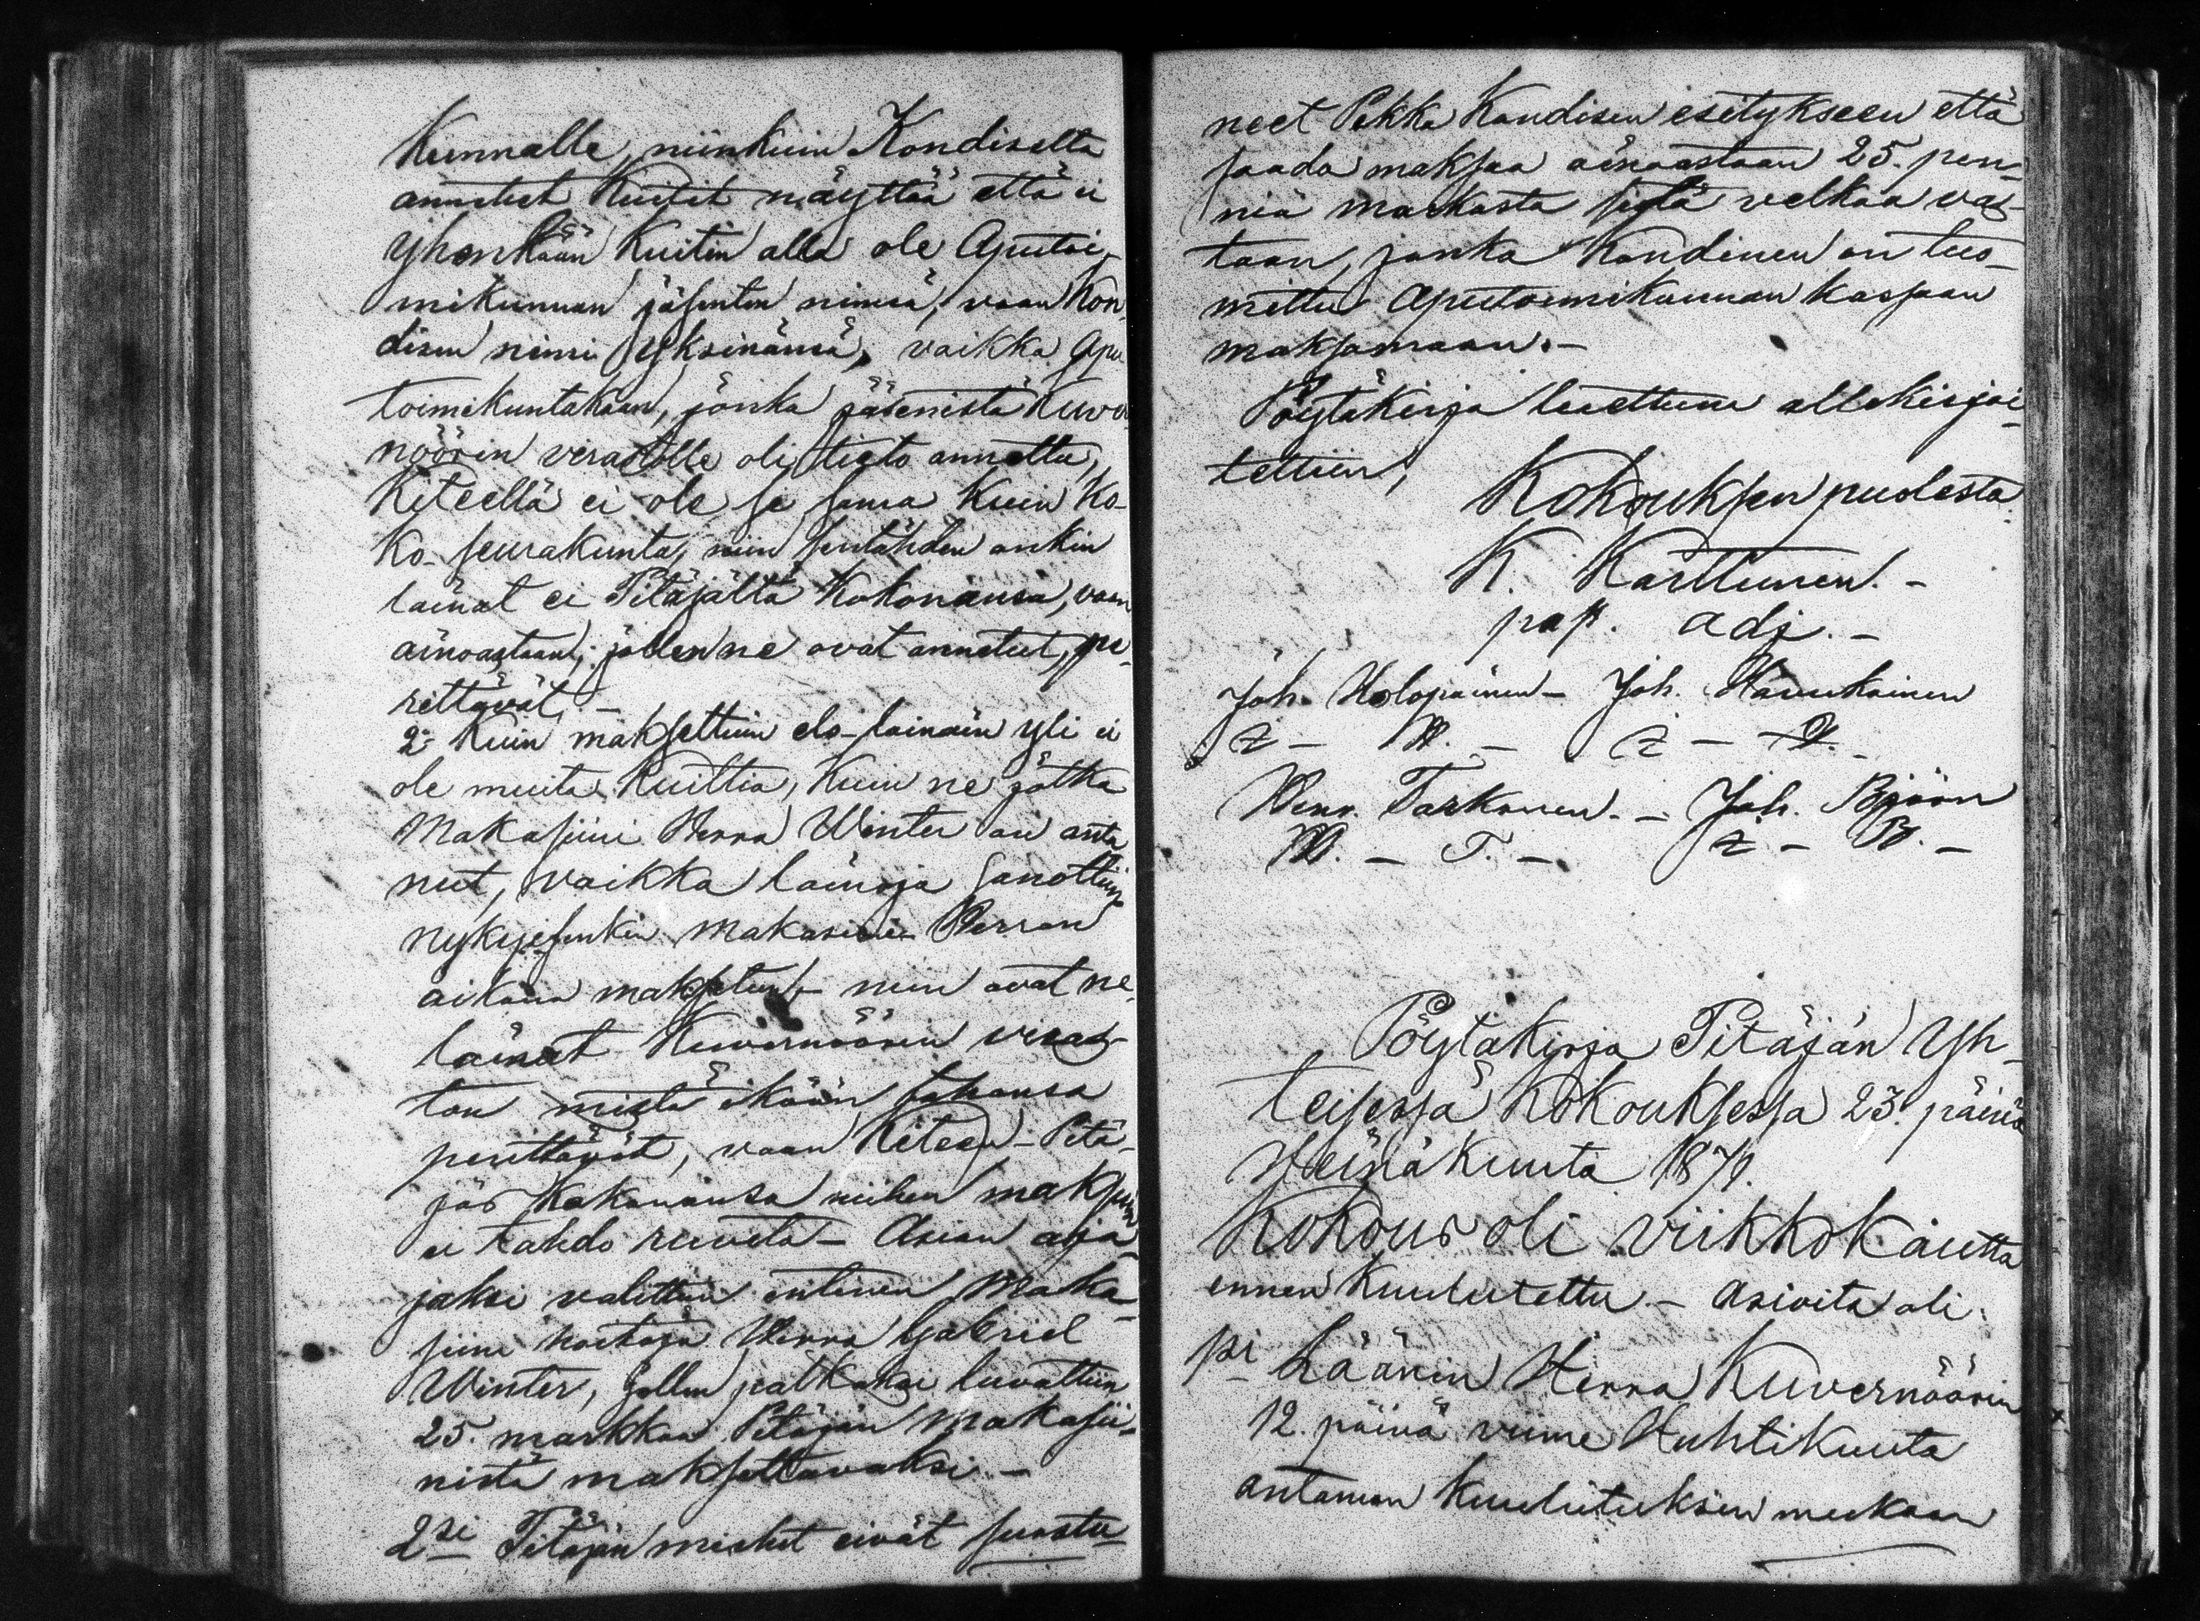 Kunnalle, niinkuin Kondiselta
annetut Kuitit näyttää että ei
yhenkään Kuitin alla ole Aputoi-
mikunnan jäsenten nimiä, vaan Kon-
disen nimi yksinänsä, vaikka Apu
toimikuntakaan, jonka jäsenistä Kuver
nöörin virastolle oli tieto annettu,
Kiteellä ei ole se sama kuin ko-
ko seurakunta, niin sentähden onkin
lainat ei Pitäjältä kokonansa, vaan
ainoastaan, jollen ne ovat annetut, pe-
rittävät. –
2:- Kuin maksettuin elo-lainain yli ei
ole muita Kuittia, Kuin ne jotka
Makasiini Herra Winter on anta
nut, vaikka lainoja sanottiin
nykyjesenkin makasiini Herran
aikana maksetun – niin ovat ne
lainat Kuvernöörin viras-
ton mistä ikään tahansa
perittävät, vaan Kiteen – Pitä-
jäs kokonansa niihen maksuun
ei tahdo ruveta – Asian aja-
jaksi valittiin entinen Maka-
siini hoitaja Herra Gabriel
Winter, jollen palkaksi luvattiin
25. markkaa Pitäjän makasii-
nista maksettavaksi. –
2si Pitäjän miehet eivät suostu-
neet Pekka Kondisen esitykseen että
saada maksaa ainoastaan 25. pen-
niä markasta sitä velkaa vas-
taan, jonka Kondinen on tuo-
mittu Aputoimikunnan kassaan
maksamaan. –
Pöytäkirja luettuna allekirjoi-
tettiin,
Kokouksen puolesta
K. Karttunen. –
past. adj. –
Joh. Holopainen – Joh. Haukkainen
J – H. – J – H. –
Henr. Tarkonen. – Joh. Björn
H. – T. – J – B. –
Pöytäkirja Pitäjän Yh-
teisessä Kokouksessa 23. päivä
Heinäkuuta 1870.
Kokous oli viikkokautta
ennen kuulutettu. – Asioita oli:
1si Läänin Herra Kuvernöörin
12. päivä viime Huhtikuuta
antaman kuulutuksen mukaan